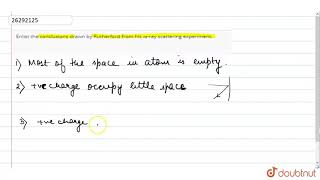 26292125
Enlist the conclusions drawn by Rutherford from his α-ray scattering experiment.
1) Most of the space in atom is empty.
2) +ve charge occupy little space
3) +ve charge
doubtnut